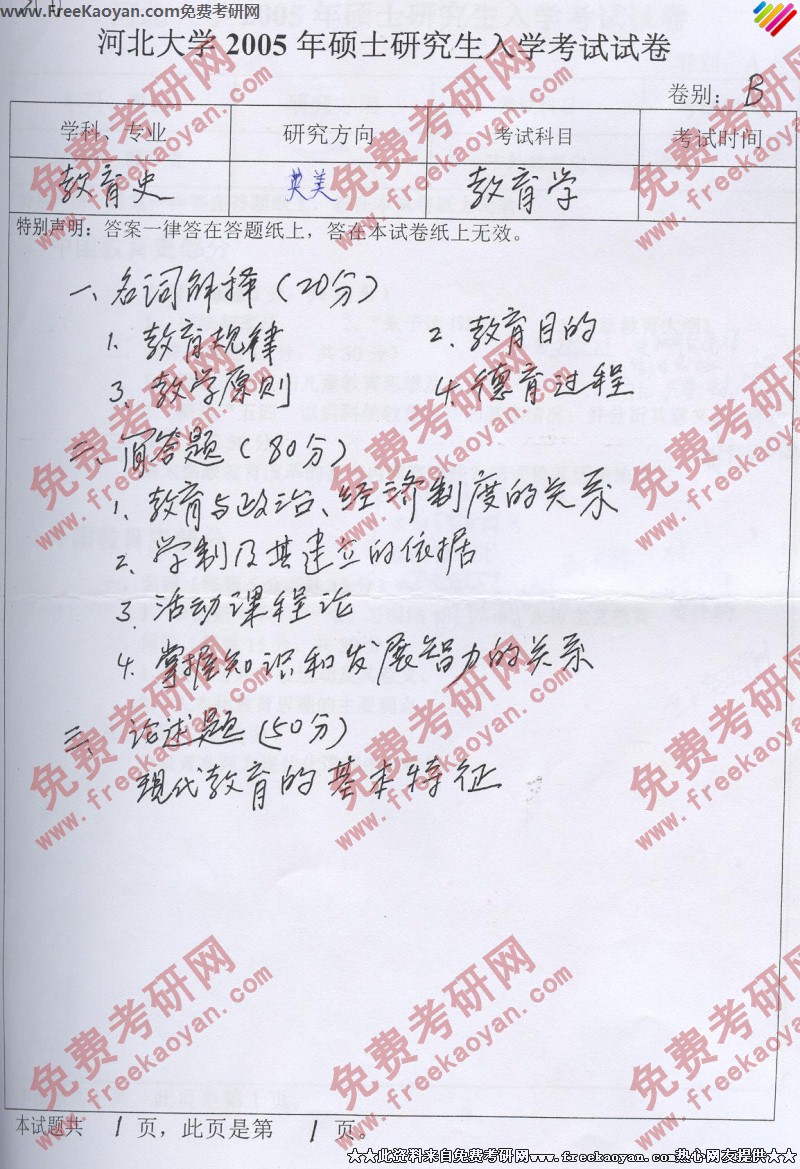 www.FreeKaoyan.com免费考研网
河北大学 2005 年硕士研究生入学考试试卷
卷别： B
学科、专业 研究方向 考试科目 考试时间
教育史 英美 教育学
特别声明：答案一律答在答题纸上，答在本试卷纸上无效。
一、名词解释（20分）
1. 教育规律 2. 教育目的
3. 教学原则 4. 德育过程
二、简答题（80分）
1. 教育与政治、经济制度的关系
2. 学制及其建立的依据
3. 活动课程论
4. 掌握知识和发展智力的关系
三、论述题（50分）
现代教育的基本特征
本试题共 1 页，此页是第 1 页。
★★此资料来自免费考研网www.freekaoyan.com热心网友提供★★
免费考研网
www.freekaoyan.com